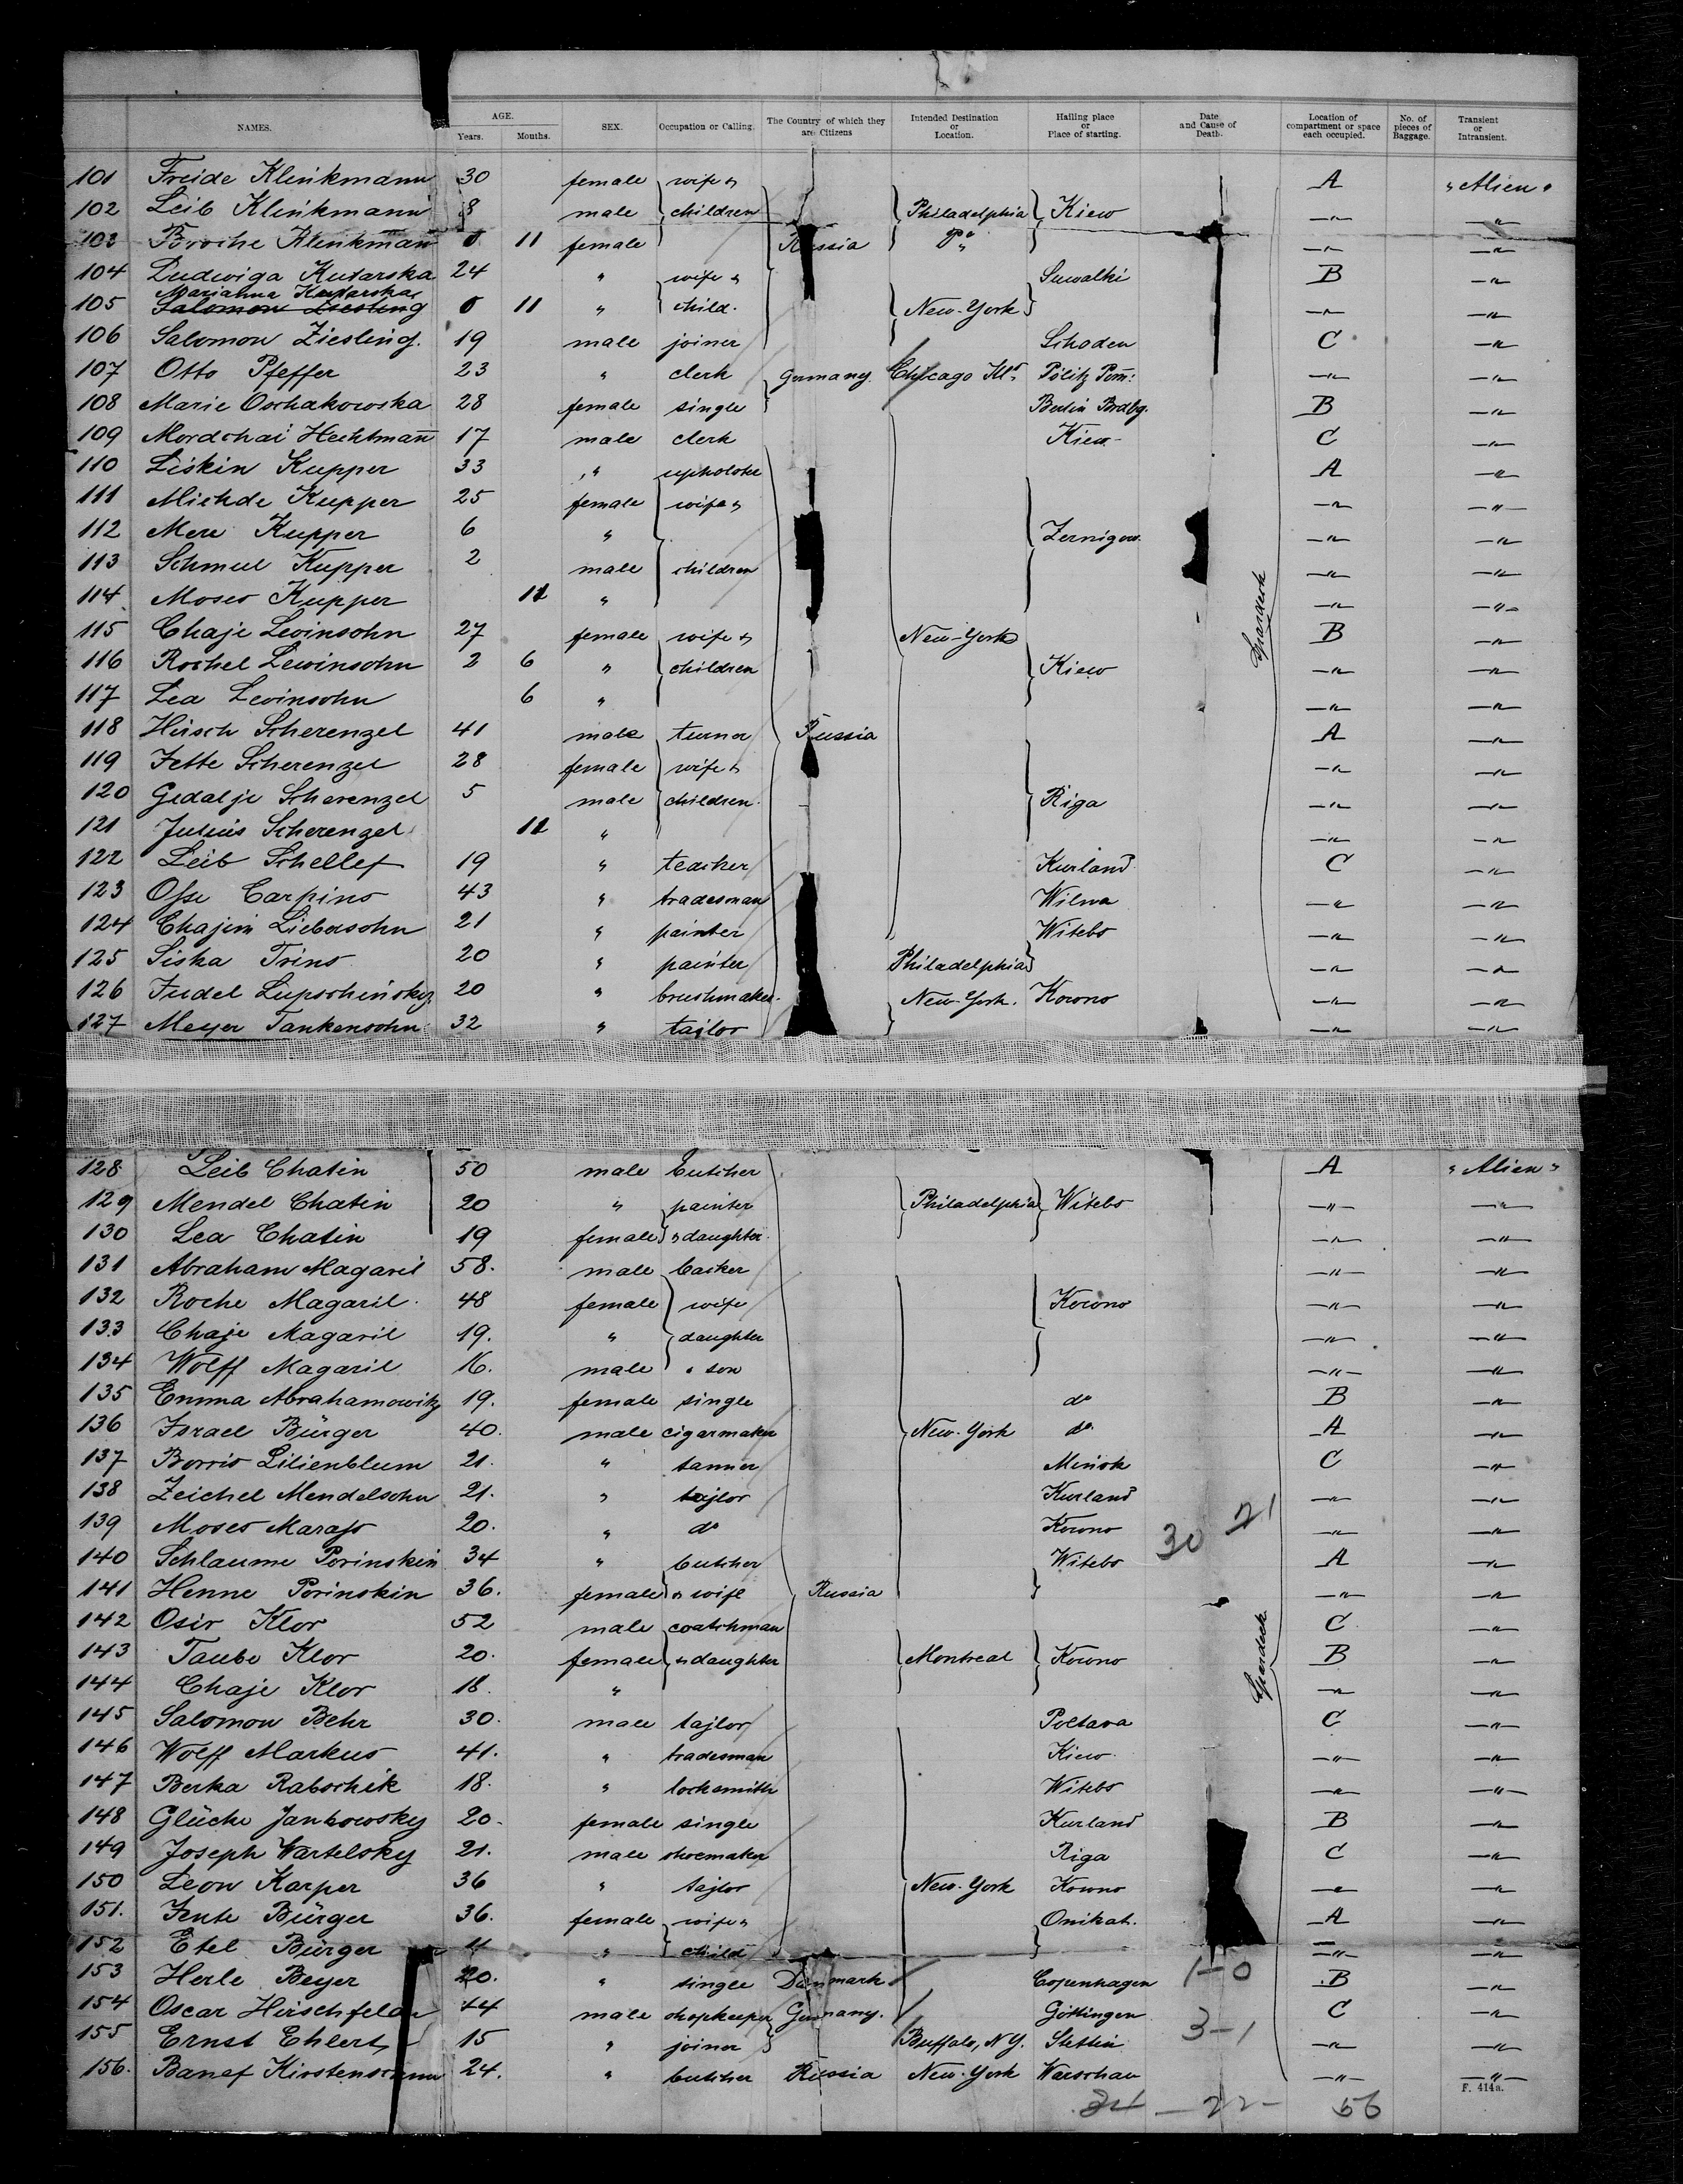 NAMES. AGE. Years. Months. SEX. Occupation or Calling. The Country of which they are Citizens Intended Destination or Location. Hailing place or Place of starting. Date and Cause of Death. Location of compartment or space each occupied. No. of pieces of Baggage. Transient or Intransient.
101 Freide Klinkmann 30 female wife & A "Alien"
102 Leib Klinkmann 8 male children Philadelphia Kiew -"- -"-
103 Broche Klinkmann 0 11 female Russia Pa " -"- -"-
104 Ludwiga Kutarska 24 " wife & Suwalki B -"-
Marianna Kutarska
105 Salomon Ziesling 0 11 " child. New-York -"- -"-
106 Salomon Ziesling. 19 male joiner Schoden C -"-
107 Otto Pfeffer 23 " clerk Germany. Chicago Ills. Pölitz Pom: -"- -"-
108 Marie Oschakowska 28 female single Berlin Brdbg. B -"-
109 Mordchai Hechtmann 17 male clerk Kiew C -"-
110 Liskin Kupper 33 " upholster A -"-
111 Michde Kupper 25 female wife & -"- -"-
112 Mere Kupper 6 " Zernigow. -"- -"-
113 Schmul Kupper 2 male children -"- -"-
114 Moses Kupper 11 " -"- -"-
115 Chaje Lewinsohn 27 female wife & New-York B -"-
116 Rochel Lewinsohn 2 6 " children Kiew -"- -"-
117 Lea Lewinsohn 6 " -"- -"-
118 Hirsch Scherenzel 41 male turner Russia A -"-
119 Jette Scherenzel 28 female wife & -"- -"-
120 Gedalje Scherenzel 5 male children. Riga -"- -"-
121 Julius Scherenzel 11 " -"- -"-
122 Leib Schellef 19 " teacher Kurland C -"-
123 Osse Carpins 43 " tradesman Wilna -"- -"-
124 Chajim Liebersohn 21 " painter Witebs -"- -"-
125 Siska Trins 20 " painter Philadelphia -"- -"-
126 Judel Lupschinsky 20 " brushmaker. New-York. Kowno -"- -"-
127 Meyer Tankensohn 32 " tajlor -"- -"-
128 Leib Chatin 50 male butcher A "Alien"
129 Mendel Chatin 20 " painter Philadelphia Witebs -"- -"-
130 Lea Chatin 19 female " daughter -"- -"-
131 Abraham Magaril 58. male backer -"- -"-
132 Roche Magaril 48 female wife Kowno -"- -"-
133 Chaje Magaril 19. " daughter -"- -"-
134 Wolff Magaril 16. male " son -"- -"-
135 Emma Abrahamowitz 19. female single do B -"-
136 Israel Bürger 40. male cigarmaker New-York do A -"-
137 Borris Lilienblum 21. " tanner Minsk C -"-
138 Zeichel Mendelsohn 21. " tajlor Kurland -"- -"-
139 Moses Marass 20. " do Kowno 30 21 -"- -"-
140 Schlaume Porinskin 34 " butcher Witebs A -"-
141 Henne Porinskin 36. female " wife Russia -"- -"-
142 Osir Klor 52 male coatchman C -"-
143 Taube Klor 20. female " daughter Montreal Kowno B -"-
144 Chaje Klor 18. " -"- -"-
145 Salomon Behr 30. male tajlor Poltava C -"-
146 Wolff Markus 41. " tradesman Kiew. -"- -"-
147 Berka Rabschik 18. " locksmith Witebs -"- -"-
148 Glücke Jankowsky 20. female single Kurland B -"-
149 Joseph Wartelsky 21. male shoemaker Riga C -"-
150 Leon Karper 36 " tajlor New-York Kowno -"- -"-
151. Jente Bürger 36. female wife & Onikat. A -"-
152 Etel Bürger 11 " child -"- -"-
153 Herle Beyer 20. " single Danmark Copenhagen 1-0 B -"-
154 Oscar Hirschfelder 44 male shopkeeper Germany. Göttingen C -"-
155 Ernst Ehlert 15 " joiner Buffalo, N.Y. Stettin 3-1 -"- -"-
156. Banef 24. " butcher Russia New-York Warschau -"- -"-
F. 414a.
34 - 22 - 56